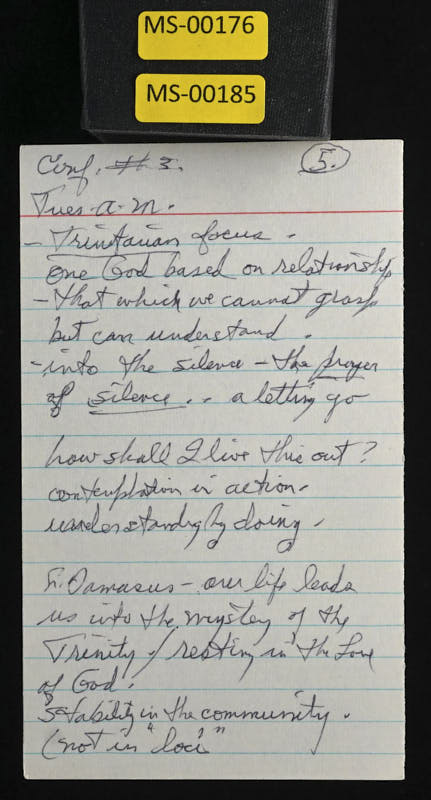 MS-00176
MS-00185
Conf. # 3.
5.
Tues-a-m.
- Trinitarian focus.
One God based on relationship
- that which we cannot grasp
but can understand.
- into the silence - the prayer
of silence .. a letting go
how shall I live this out?
contemplation in action.
understanding by doing.
Fr. Damasus - our life leads
us into the mystery of the
Trinity / resting in the Love
of God.
stability in the community.
(not in "loci"